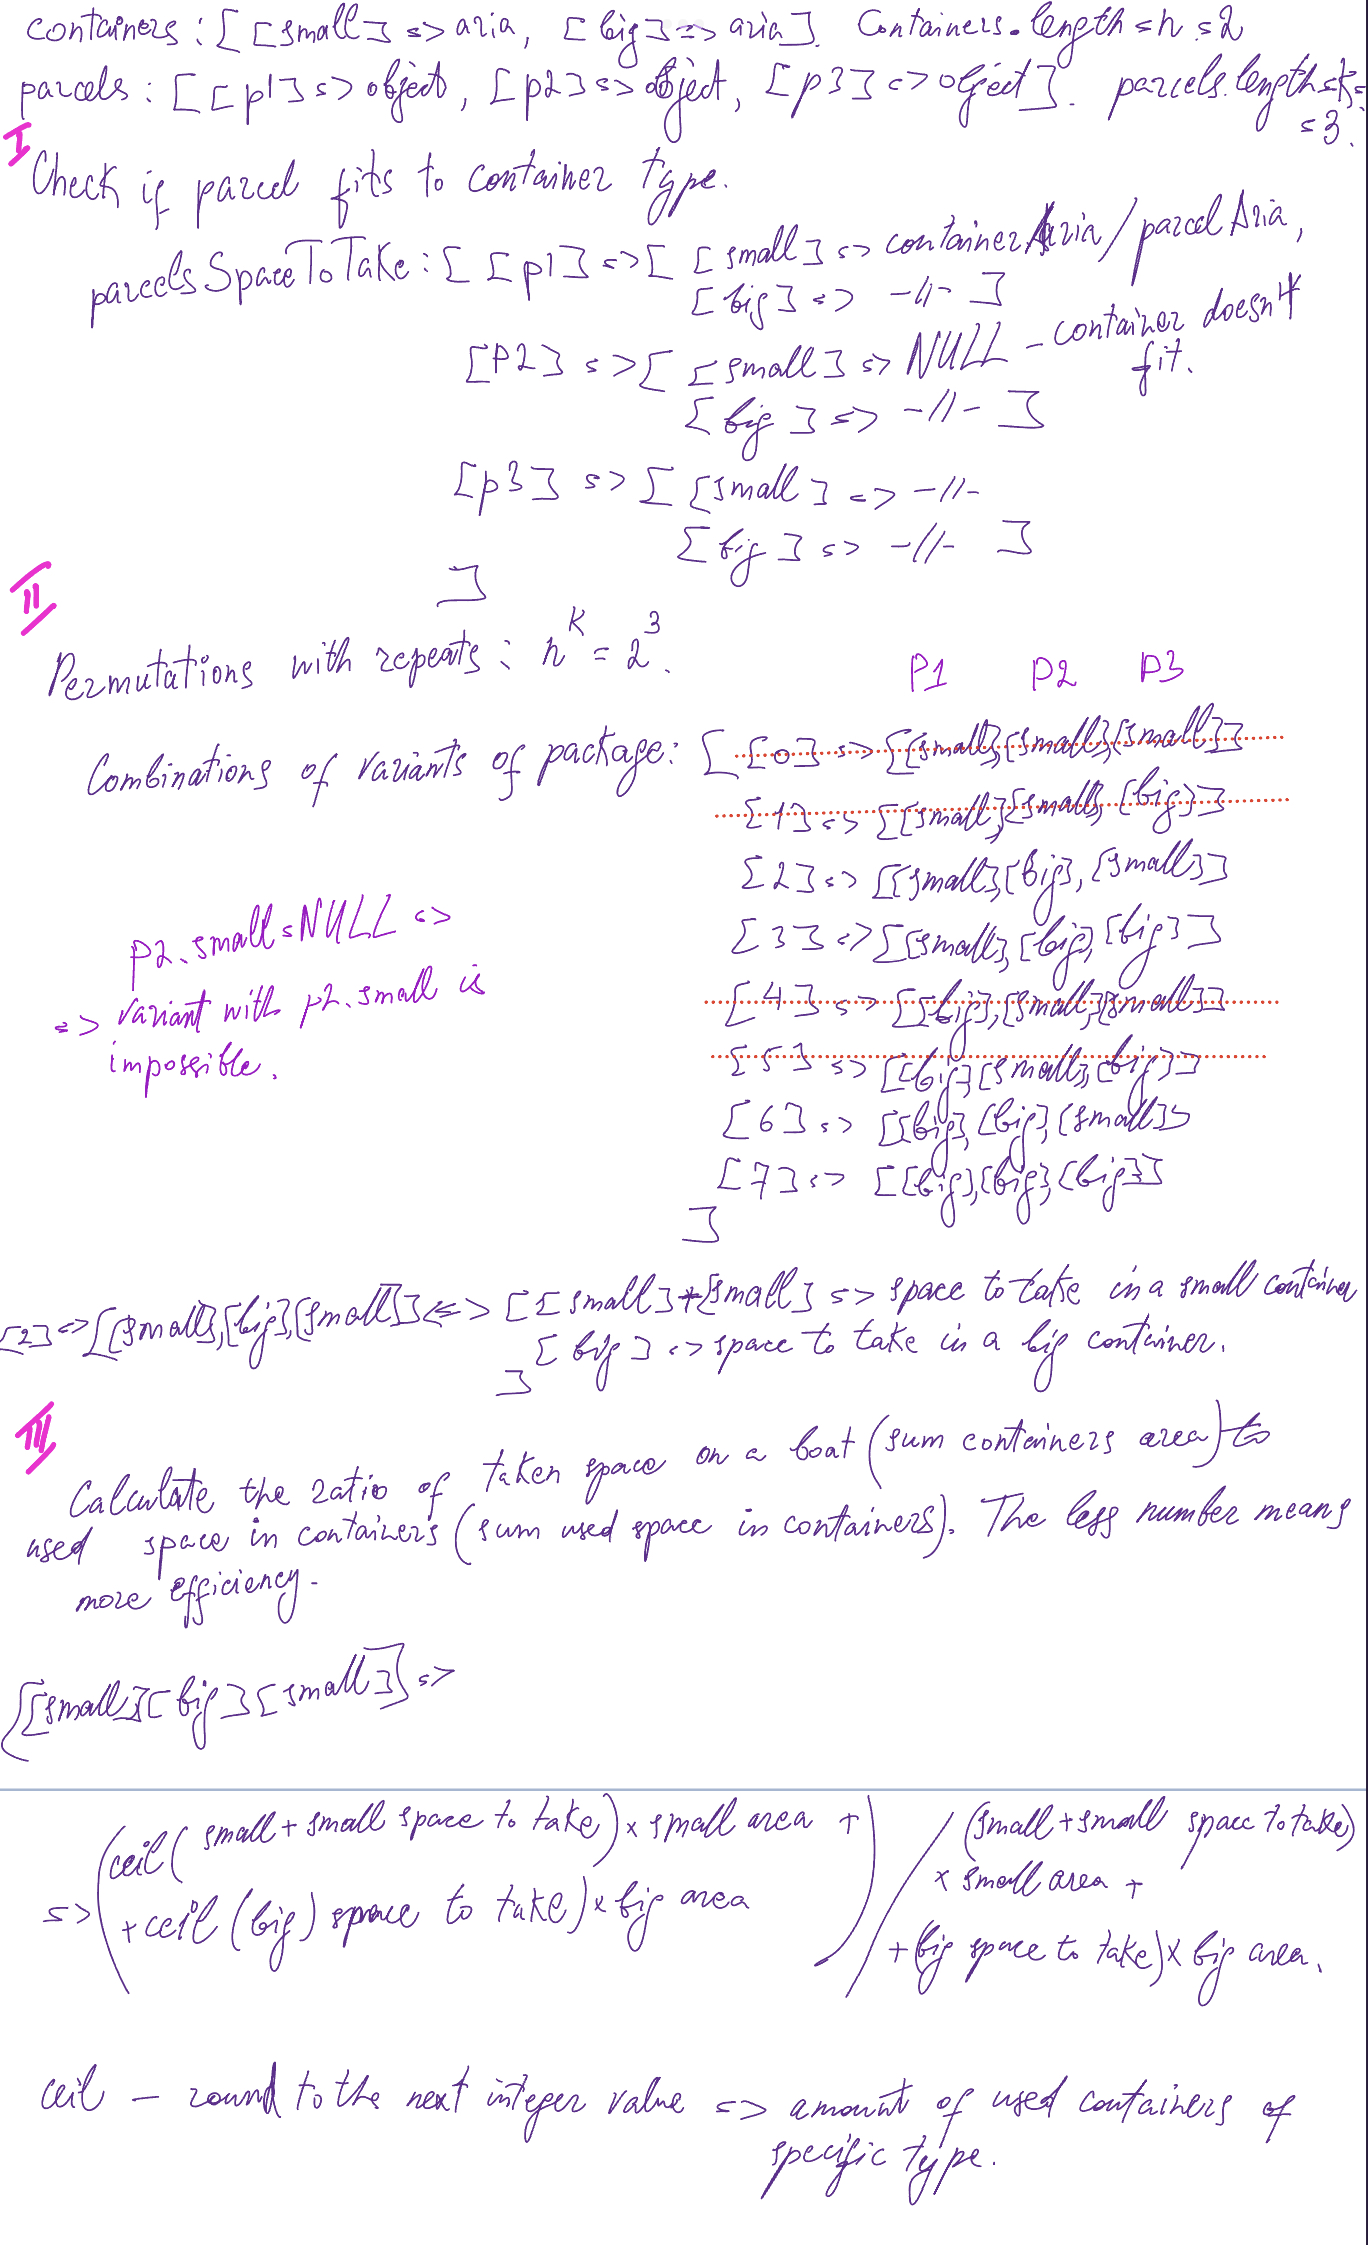 containers : [ [small] => aria, [big] => aria]. Containers.length = n = 2
parcels : [ [p1] => object, [p2] => object, [p3] => object]. parcels.length = k =
= 3.
I
Check if parcel fits to container type.
parcelsSpaceToTake : [ [p1] => [ [small] => containerAria / parcelAria,
[big] => -//- ]
[P2] => [ [small] => NULL - container doesn't
fit.
[big] => -//- ]
[p3] => [ [small] => -//-
[big] => -//- ]
]
II
Permutations with repeats : n^k = 2^3.
P1 P2 P3
Combinations of variants of package: [ [0] => [[small],[small],[small]]
[1] => [[small],[small],[big]]
[2] => [[small],[big],[small]]
[3] => [[small],[big],[big]]
[4] => [[big],[small],[small]]
[5] => [[big],[small],[big]]
[6] => [[big],[big],[small]]
[7] => [[big],[big],[big]]
]
p2.small = NULL =>
=> variant with p2.small is
impossible.
[2] => [[small],[big],[small]] <=> [ [small] + [small] => space to take in a small container
[big] => space to take in a big container.
]
III
Calculate the ratio of taken space on a boat (sum containers area) to
used space in containers (sum used space in containers). The less number means
more efficiency.
[[small][big][small]] =>
=> (ceil( small + small space to take) x small area + / (small + small space to take)
x small area +
+ ceil (big) space to take) x big area)
+ (big space to take) x big area.
ceil - round to the next integer value => amount of used containers of
specific type.